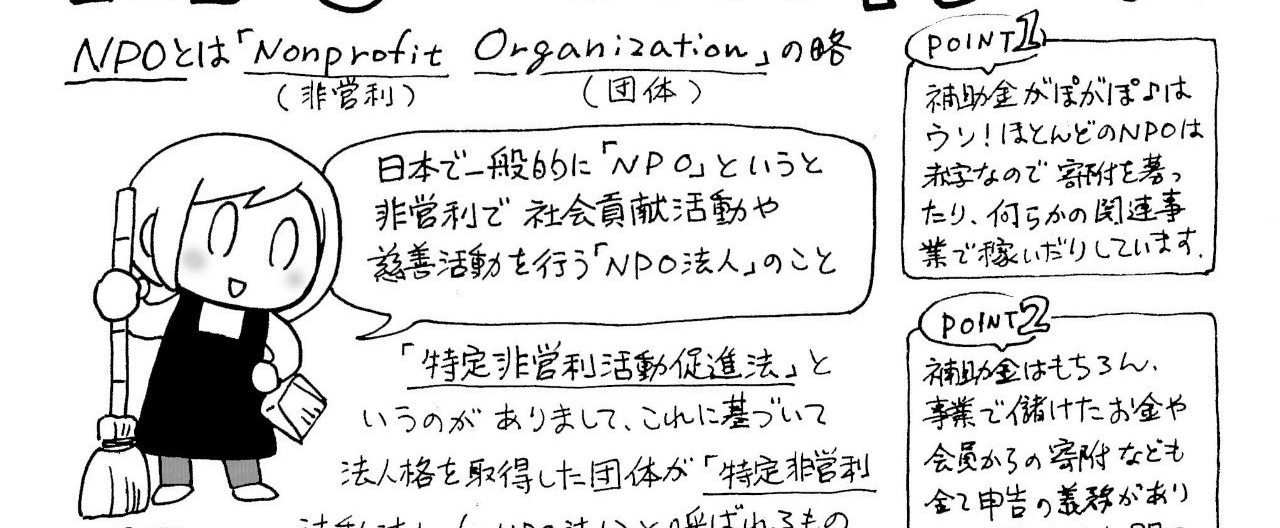 NPOとは「Nonprofit Organization」の略
(非営利) (団体)
日本で一般的に「NPO」というと
非営利で社会貢献活動や
慈善活動を行う「NPO法人」のこと
「特定非営利活動促進法」と
いうのがありまして、これに基づいて
法人格を取得した団体が「特定非営利
と呼ばれるもの
POINT1
補助金がぽがぽ♪は
ウソ!ほとんどのNPOは
赤字なので寄附を募っ
たり、何らかの関連事
業で稼いだりしています。
POINT2
補助金はもちろん、
事業で儲けたお金や
会員からの寄附なども
全て申告の義務があり